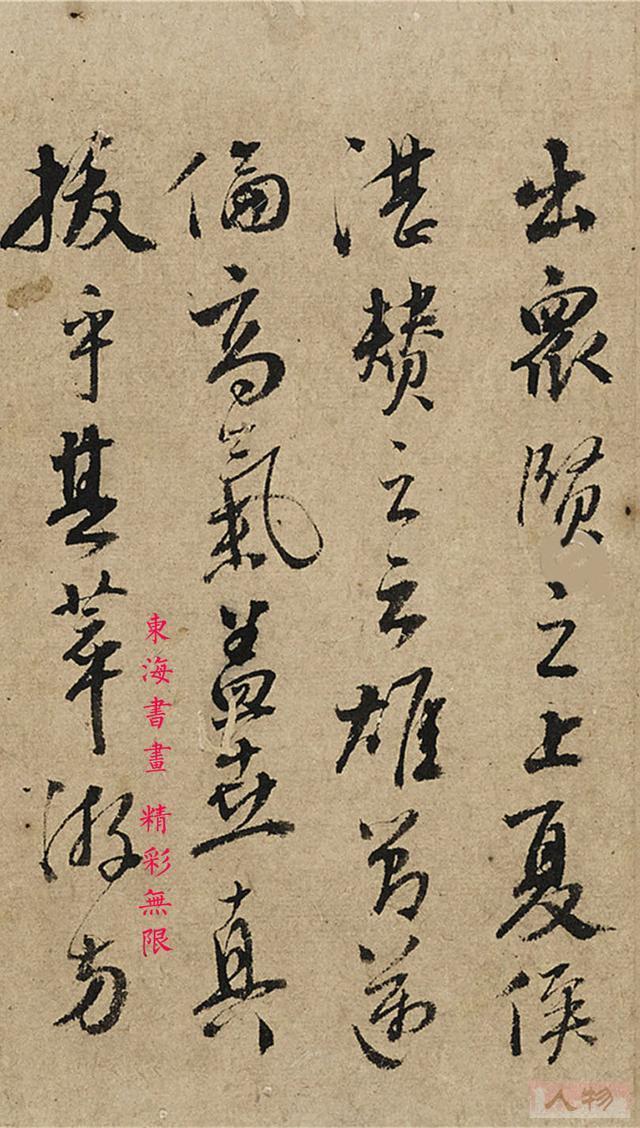 出眾賢之上夏侯
湛賛之云雄節邁
倫高氣蓋世真
拔乎其萃游方
東海書畫 精彩無限
人物